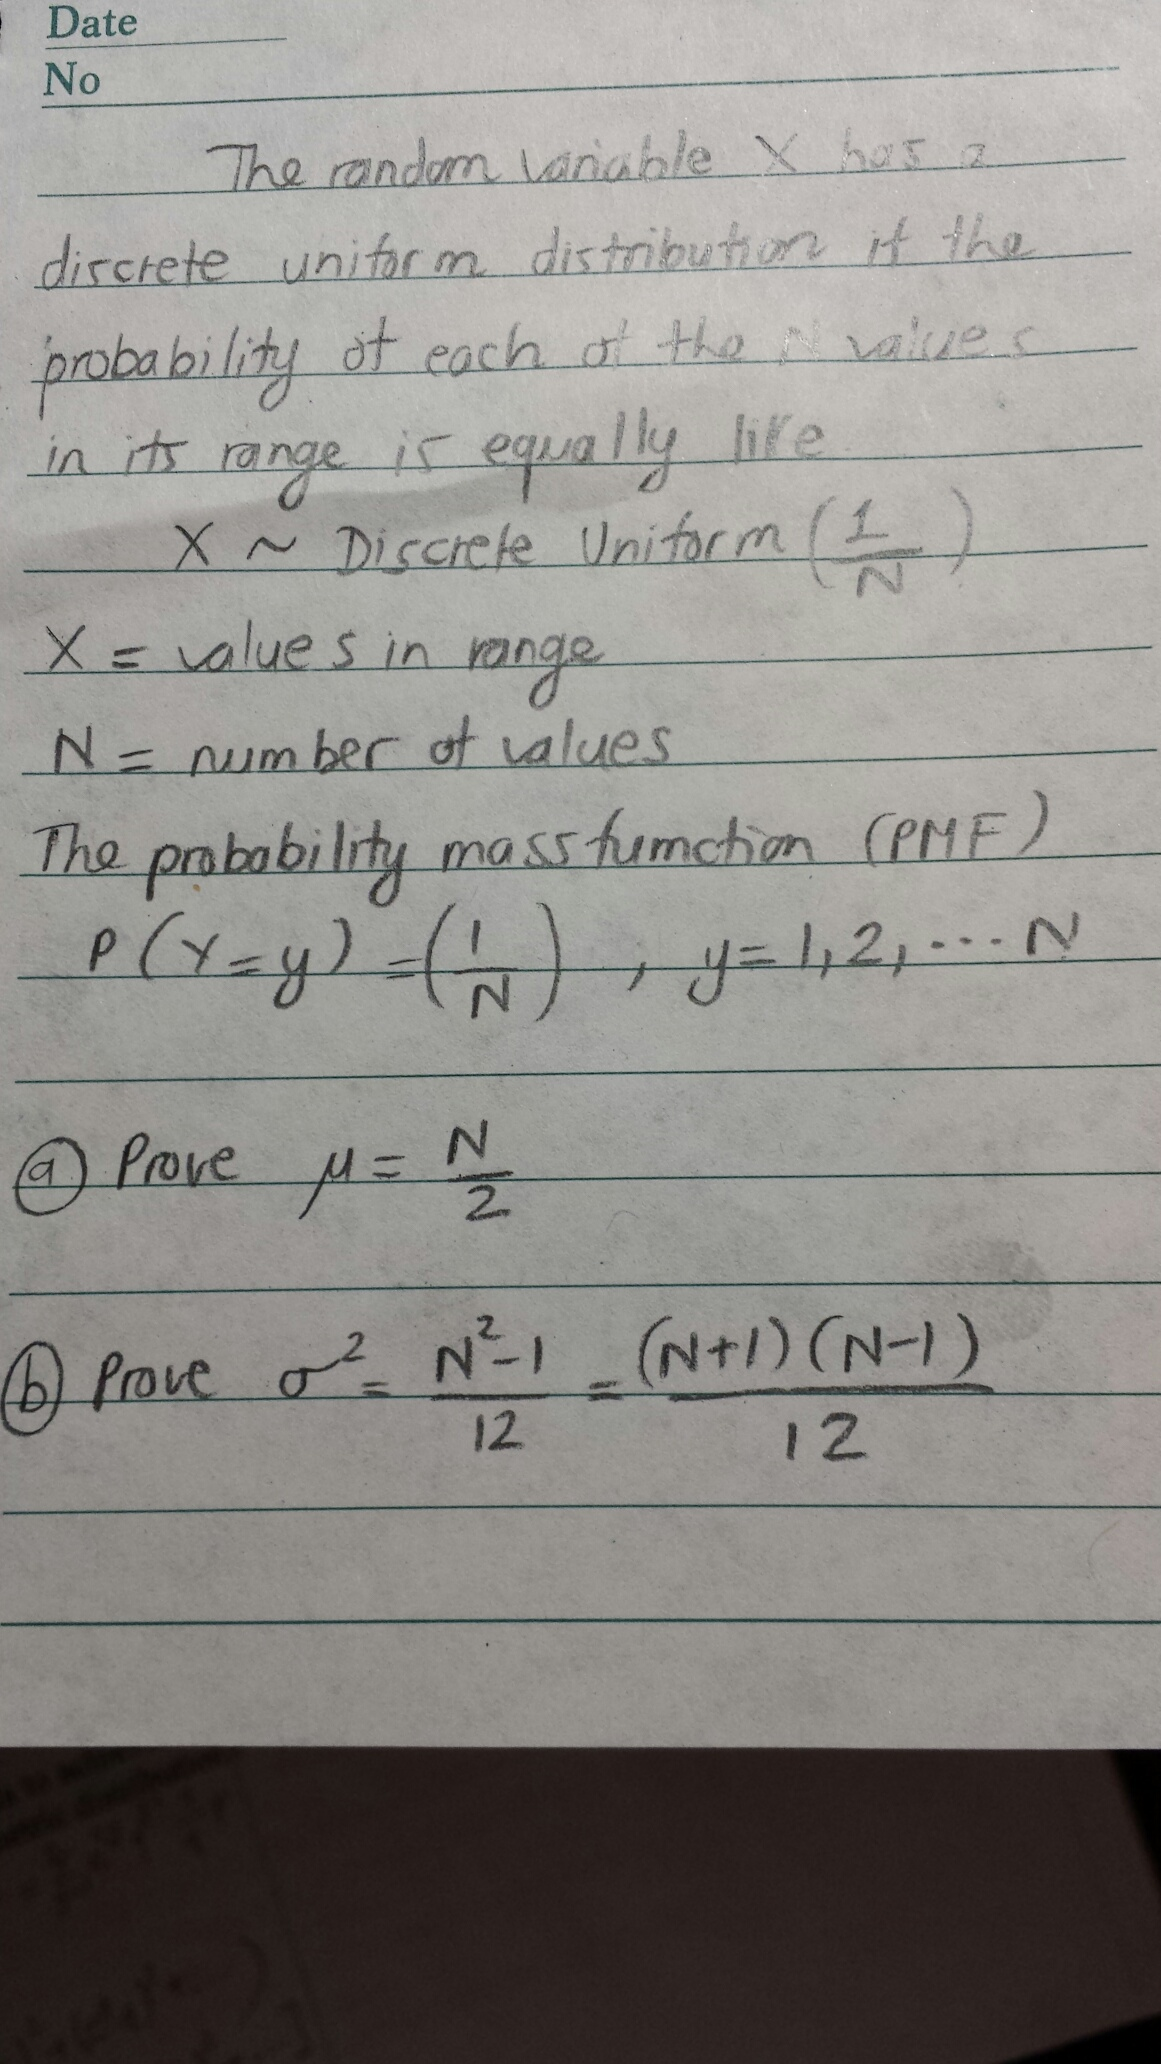 Date
No
The random variable X has a
discrete uniform distribution if the
probability of each of the N values
in its range is equally like
X ~ Discrete Uniform (1/N)
X = values in range
N = number of values
The probability mass fumction (PMF)
P(Y=y) = (1/N), y=1,2,...N
(a) Prove μ = N/2
(b) Prove σ² = N²-1/12 = (N+1)(N-1)/12